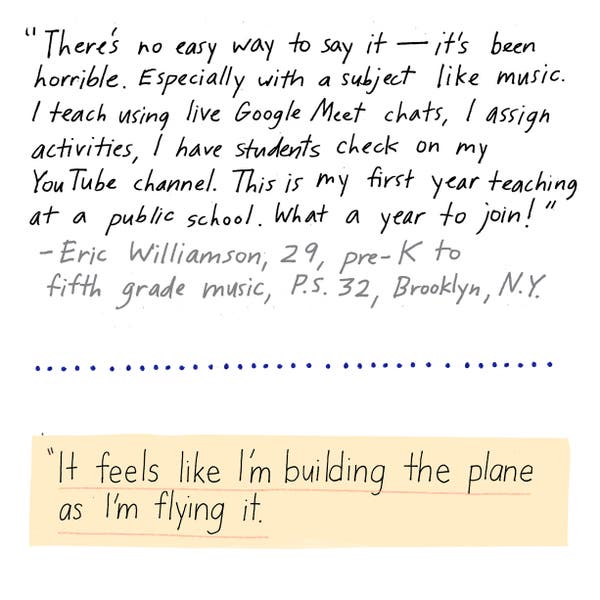 "There's no easy way to say it — it's been
horrible. Especially with a subject like music.
I teach using live Google Meet chats, I assign
activities, I have students check on my
YouTube channel. This is my first year teaching
at a public school. What a year to join!"
- Eric Williamson, 29, pre-K to
fifth grade music, P.S. 32, Brooklyn, N.Y.
"It feels like I'm building the plane
as I'm flying it.